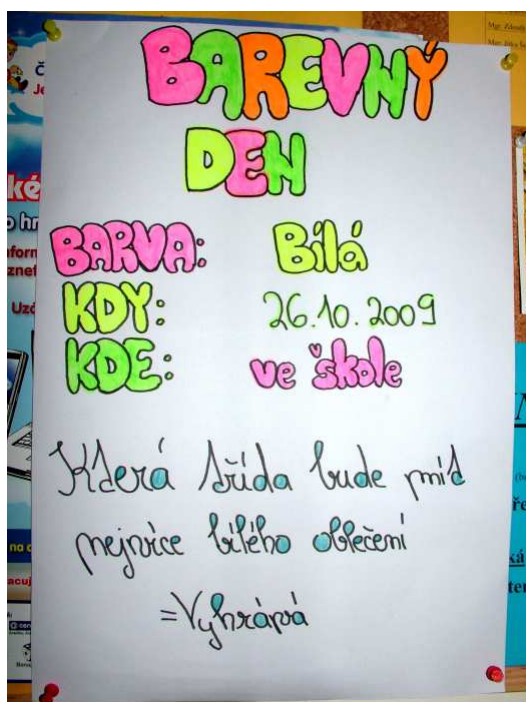 BAREVNÝ
DEN
BARVA: Bílá
KDY: 26.10.2009
KDE: ve škole
Která třída bude mít
nejvíce bílého oblečení
=Vyhrává